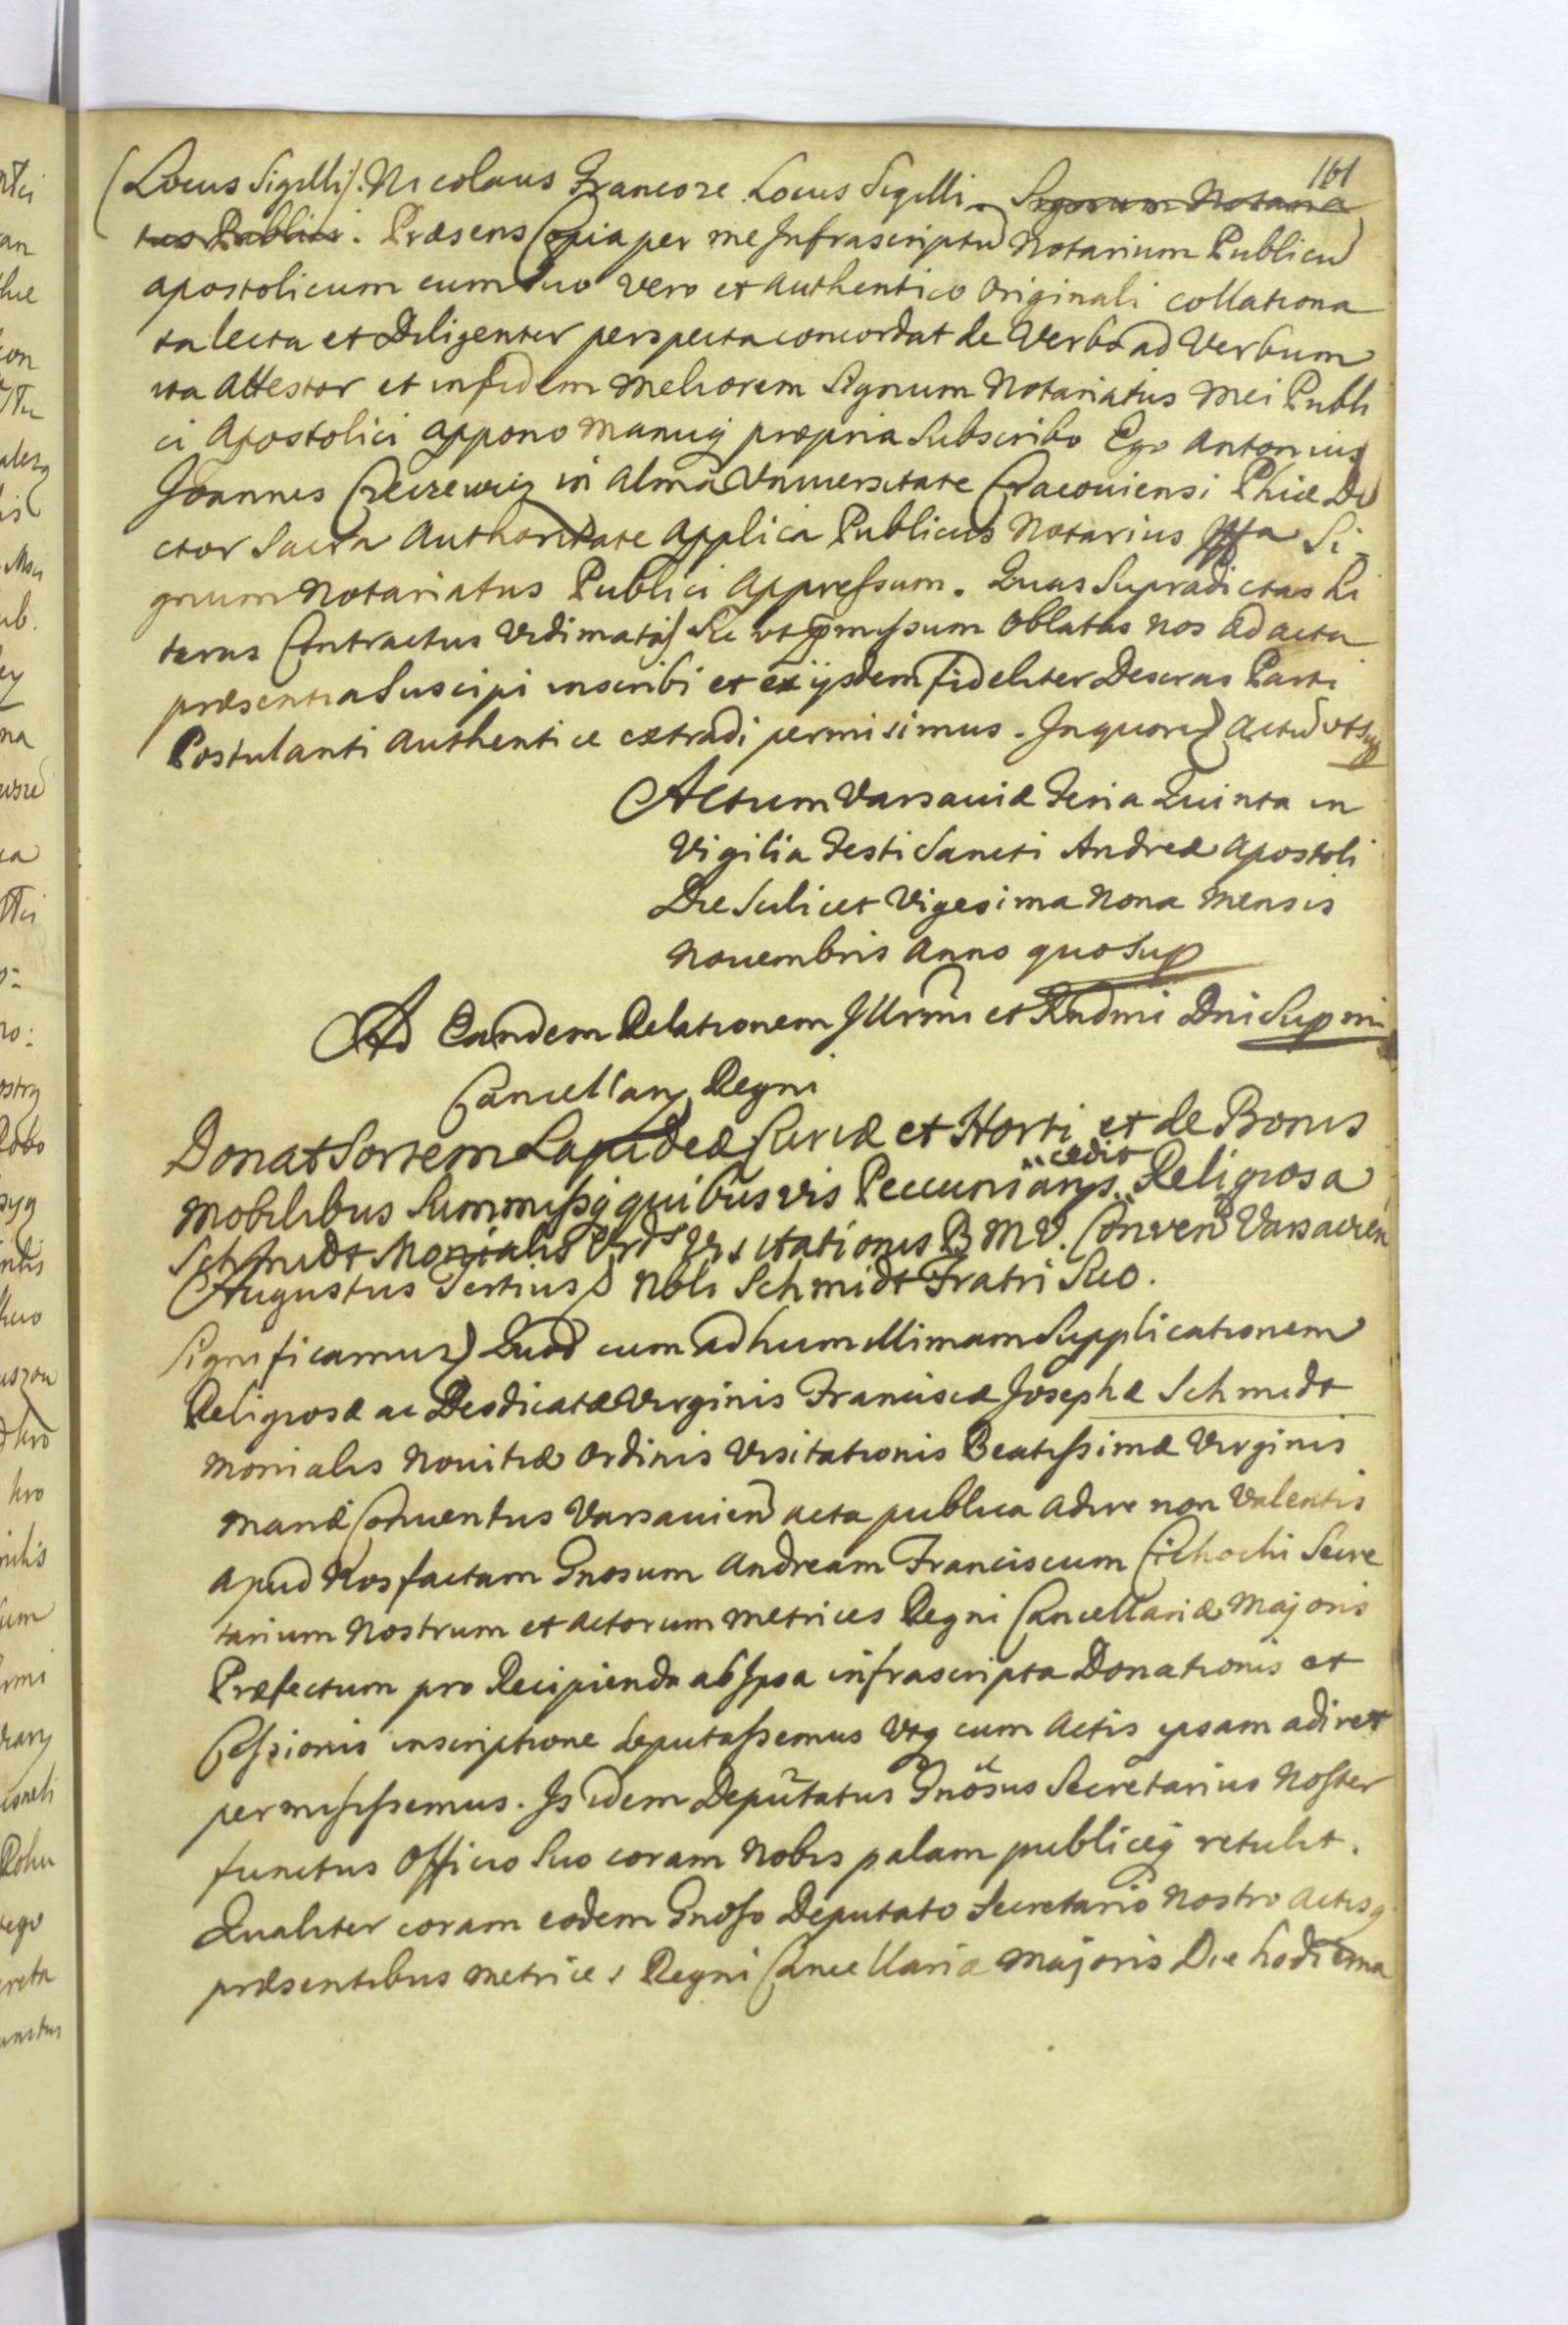 161
(Locus Sigilli). Nicolaus Francoze Locus Sigilli. Signum Notaria
tus Publici. Præsens Copia per me Infrascriptũ Notarium Publicũ
apostolicum cum suo vero et authentico Originali collationa
ta lecta et Diligenter perspecta concordat de Verbo ad Verbum
ita attestor et in fidem meliorem Signum Notariatus mei Publi
ci Apostolici appono manuq propria Subscribo Ego Antonius
Joannes in Alma Universitate Cracoviensi Phiæ Do
ctor Sacra Authoritate Applica Publicus Notarius Si
gnum Notariatus Publici Appressum. Quas Supradictas Li
teras Contractus Vidimatas Sic ut pmissum Oblatas nos ad acta
præsentia Suscipi inscribi et ex ijsdem fideliter Descras Parti
Postulanti authentice extradi permisimus. In quorũ Actũ ut sup
Actum Varsaviæ Feria Quinta in
Vigilia Festi Sancti Andreæ Apostoli
Die Scilicet Vigesima Nona Mensis
Novembris Anno quo Sup
Ad Eandem Relationem Illrmi et Rndmi Dni Supmi
Cancellary Regni
Donat Sortem Lapideæ Curiæ et Horti et de Bonis
mobilibus Summisq quibusvis Pecuniarys cedit Religiosa
Schmidt Monialis Ords Visitationis B M V. Conven Varsavien
Augustus Tertius Nbli Schmidt Fratri Suo.
Significamus Quod cum ad humillimam Supplicationem
Religiosæ ac Deodicatæ Virginis Franciscæ Josephæ Schmidt
monialis Novitiæ Ordinis Visitationis Beatissimæ Virginis
Mariæ Conventus Varsavien acta publica adire non Valentis
apud Nos factam Gnosum Andream Franciscum Cichocki Secre
tarium Nostrum et Actorum Metrices Regni Cancellariæ Majoris
Præfectum pro Recipienda ab Ipsa infrascripta Donationis et
Cessionis inscriptione deputassemus Utq cum Actis ipsam adiret
permisissemus. Is idem Deputatus Gnosus Secretarius Noster
functus Officio Suo coram Nobis palam publiceq retulit.
Qualiter coram eodem Gnoso Deputato Secretario Nostro Actisq
præsentibus Metrices Regni Cancellariæ Majoris Die hodierna